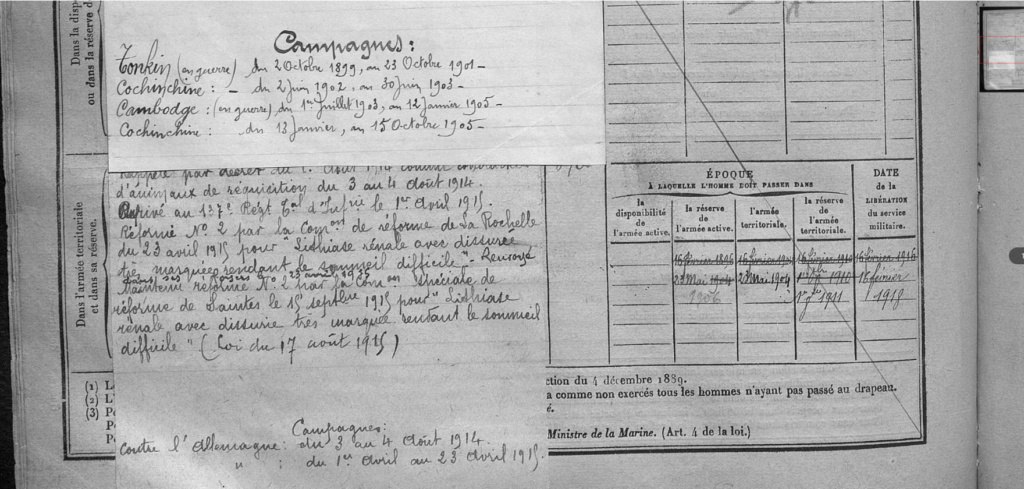 Dans la disp
ou dans la réserve d
Campagnes:
Tonkin (en guerre) du 2 Octobre 1899, au 23 Octobre 1901 -
Cochinchine: - du 2 juin 1902, au 30 juin 1903 -
Cambodge: (en guerre) du 1er Juillet 1903, au 12 Janvier 1905 -
Cochinchine: du 13 Janvier, au 15 Octobre 1905 -
Dans l'armée territoriale
et dans sa réserve.
Rappelé par décret du 1. Août 1914 comme conducteur
d'animaux de réquisition du 3 au 4 Août 1914.
Arrivé au 137e Regt Tal d'Infrie le 1er Avril 1915.
Réformé No 2 par la Comon de réforme de La Rochelle
du 23 avril 1915 pour "Lithiase rénale avec dissurie
très marquée rendant le sommeil difficile". Renvoyé
dans ses foyers le 23 avril 1915
Maintenu réformé No 2 par la Comon spéciale de
réforme de Saintes le 15 septbre 1915 pour "Lithiase
rénale avec dissurie très marquée rendant le sommeil
difficile" (Loi du 17 août 1915)
Campagnes:
Contre l'Allemagne: du 3 au 4 Août 1914.
" : du 1er Avril au 23 Avril 1915.
ÉPOQUE
À LAQUELLE L'HOMME DOIT PASSER DANS
DATE
de la
LIBÉRATION
du service
militaire.
la
disponibilité
de
l'armée active.
la réserve
de
l'armée active.
l'armée
territoriale.
la réserve
de
l'armée
territoriale.
16 février 1896
16 février 1910
16 février 1916
23 Mai 1904
23 Mai 1904
1er 1910
15 février
1906
1911
1918
(1) L
(2) L'
(3) P
P
P
ction du 4 décembre 1889.
a comme non exercés tous les hommes n'ayant pas passé au drapeau.
é.
Ministre de la Marine. (Art. 4 de la loi.)